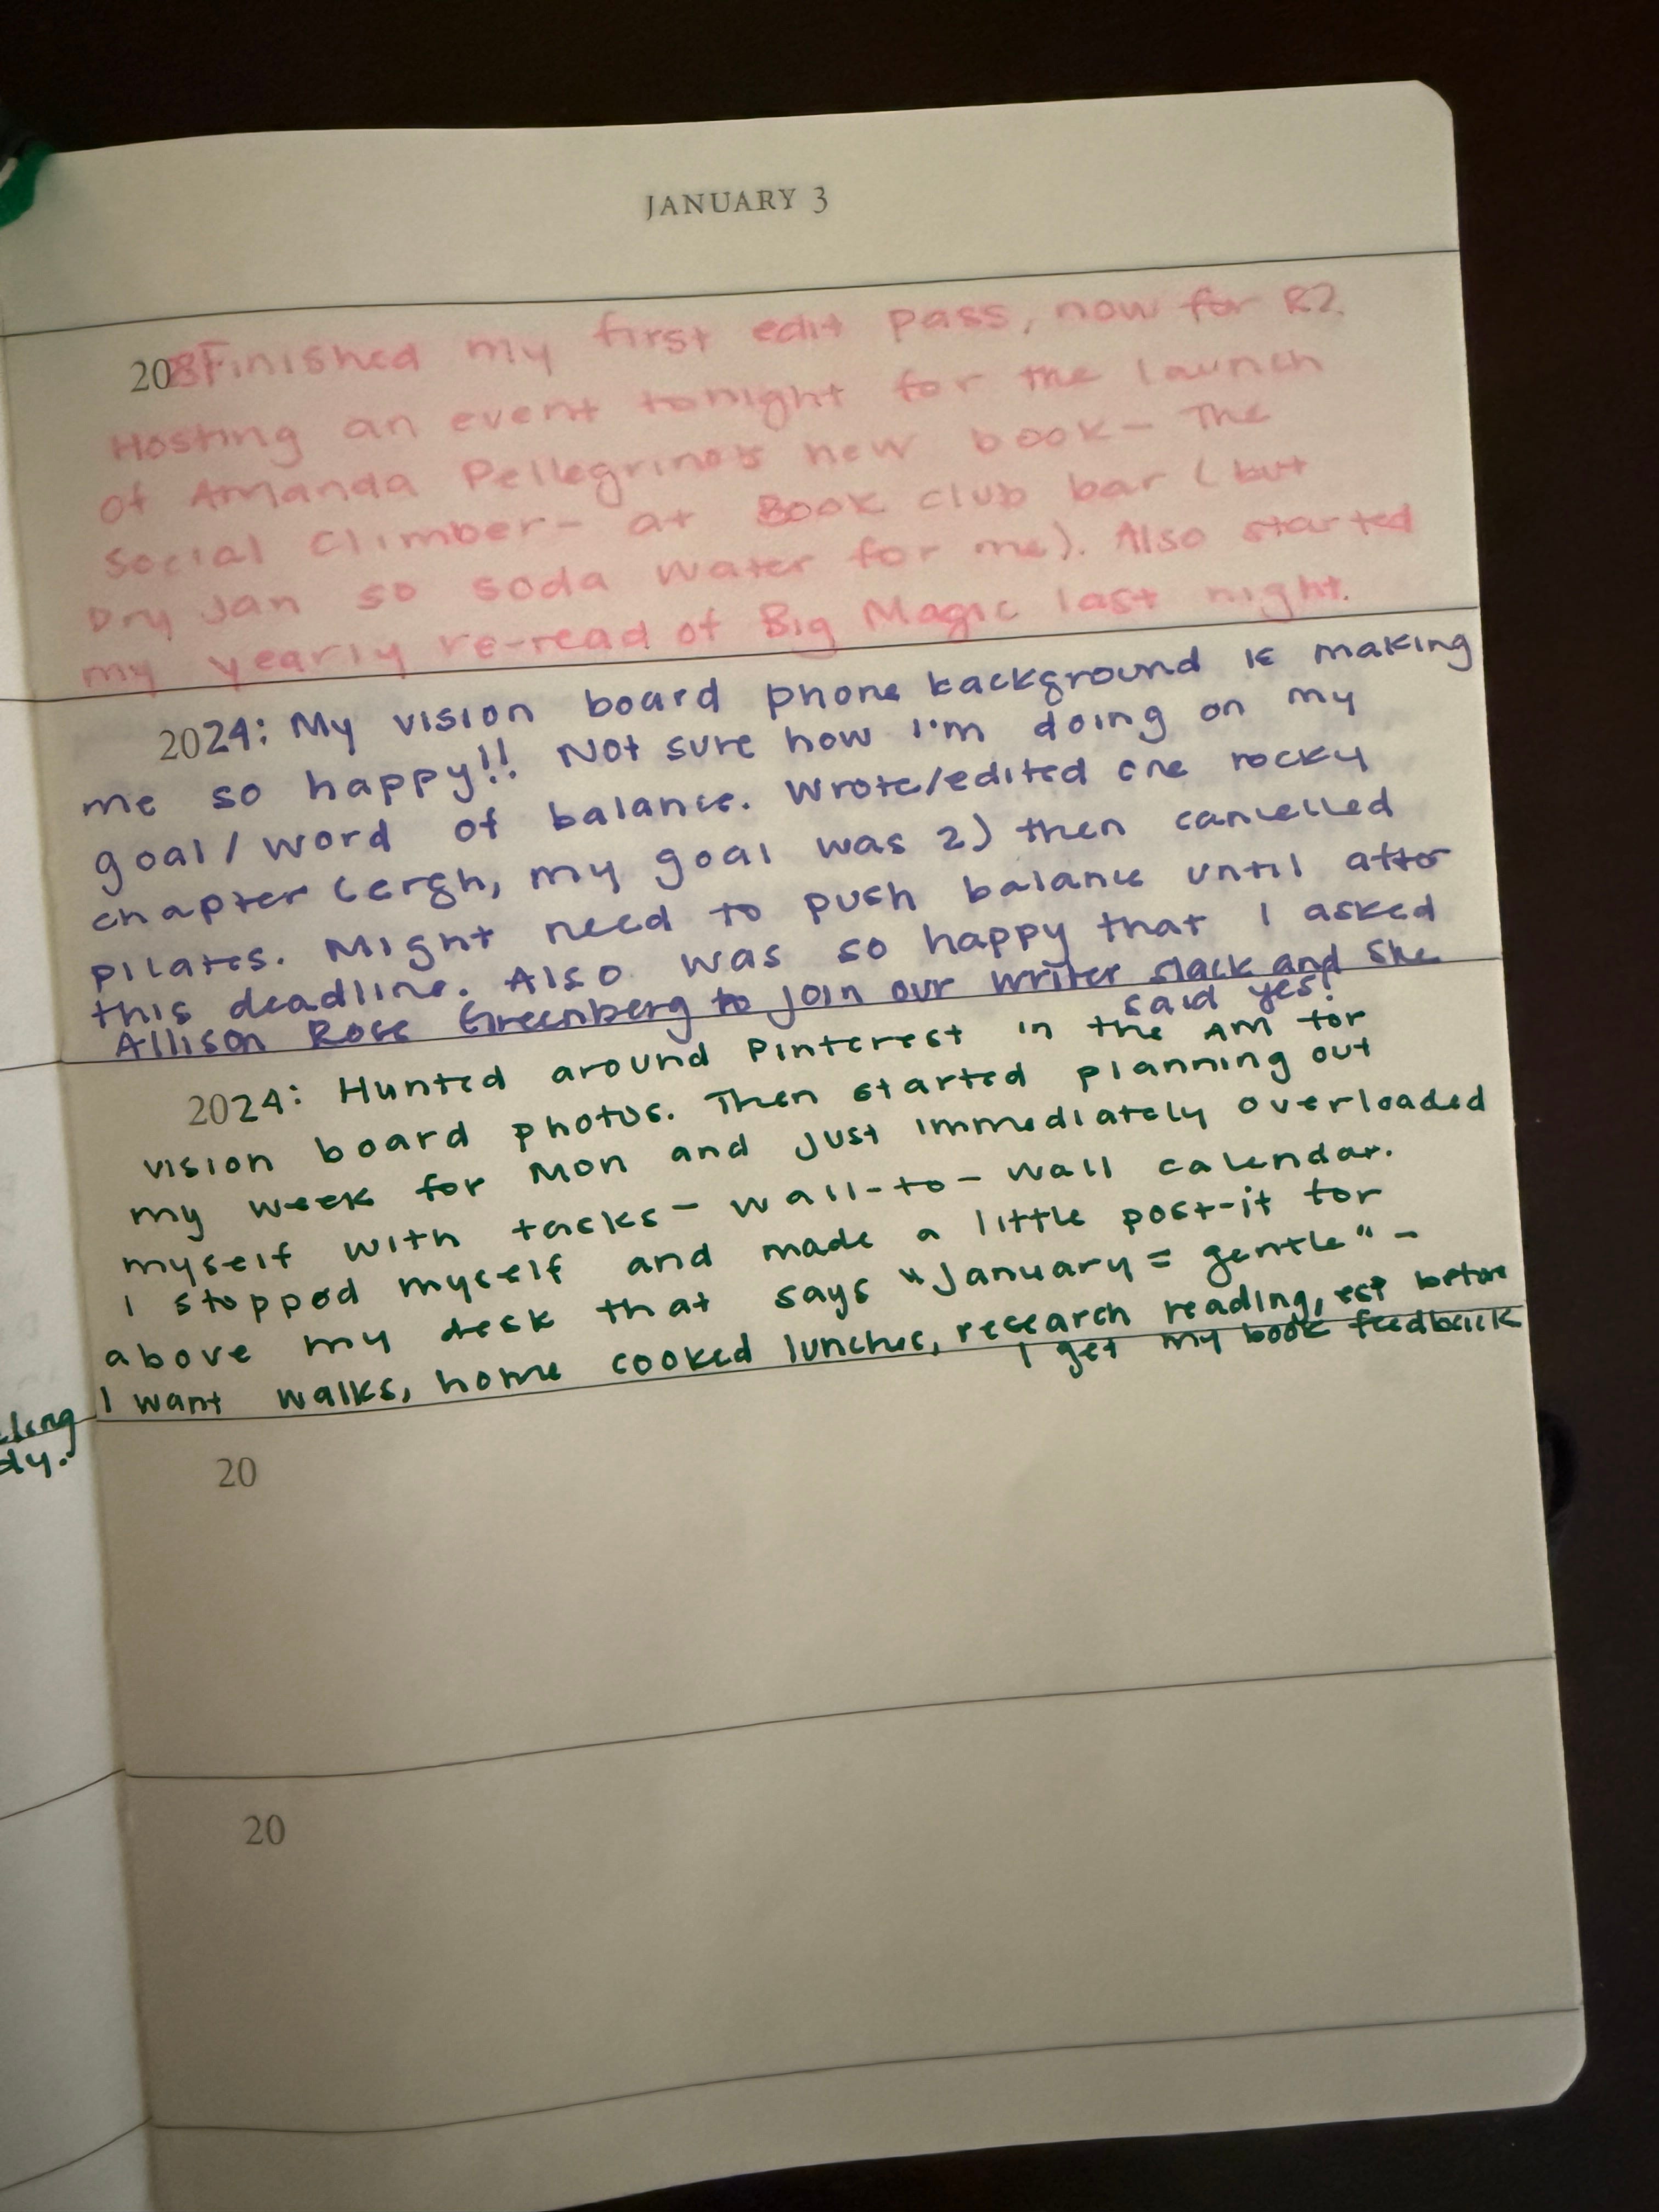 JANUARY 3
203 Finished my first edit pass, now for R2.
Hosting an event tonight for the launch
of Amanda Pellegrino's new book - The
Social Climber - at Book club bar (but
Dry Jan so soda water for me). Also started
my yearly re-read of Big Magic last night.
2024: My vision board phone background is making
me so happy!! Not sure how I'm doing on my
goal/word of balance. Wrote/edited one rocky
chapter (ergh, my goal was 2) then cancelled
pilates. Might need to push balance until after
this deadline. Also was so happy that I asked
Allison Rose Greenberg to join our writer slack and she
said yes!
2024: Hunted around Pinterest in the AM for
vision board photos. Then started planning out
my week for Mon and just immediately overloaded
myself with tasks - wall-to-wall calendar.
I stopped myself and made a little post-it for
above my desk that says "January = gentle" -
I want walks, home cooked lunches, research reading, before
I get my book feedback
20
20